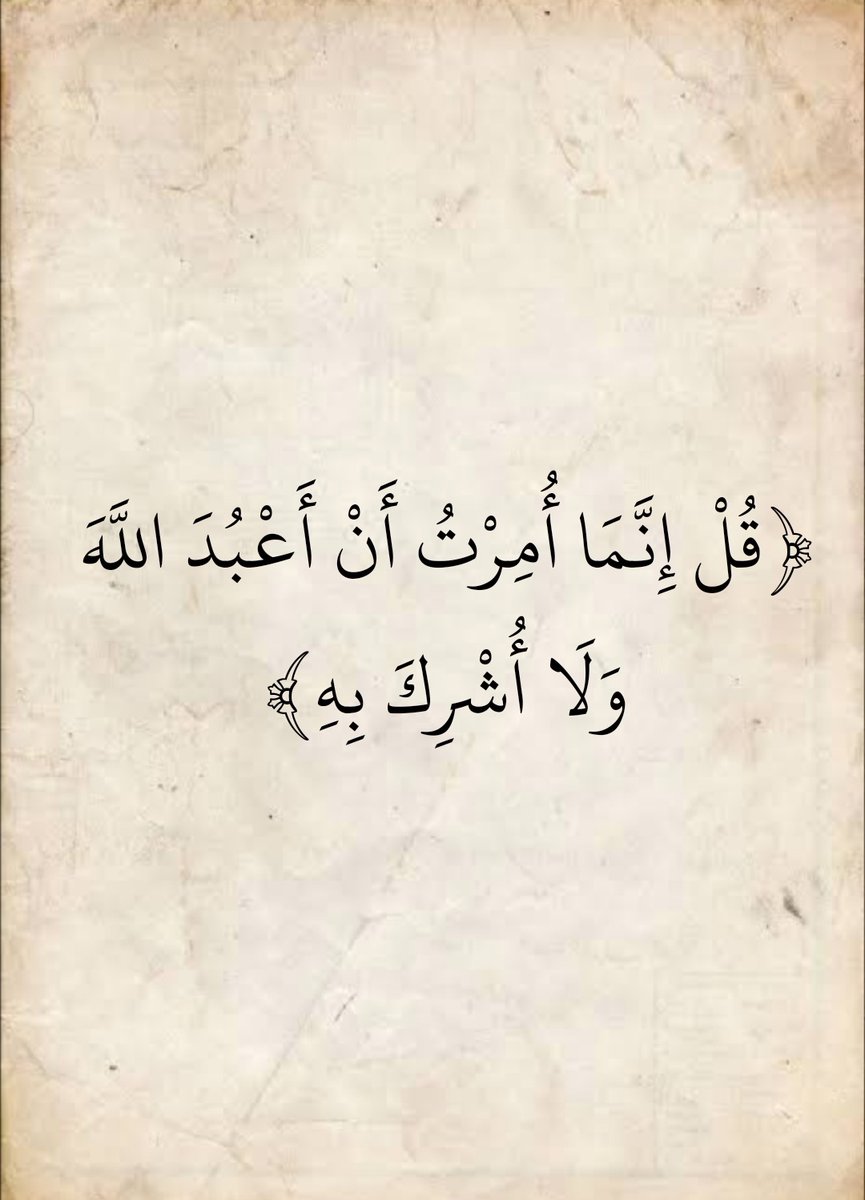 ﴿قُلْ إِنَّمَا أُمِرْتُ أَنْ أَعْبُدَ اللَّهَ
وَلَا أُشْرِكَ بِهِ﴾